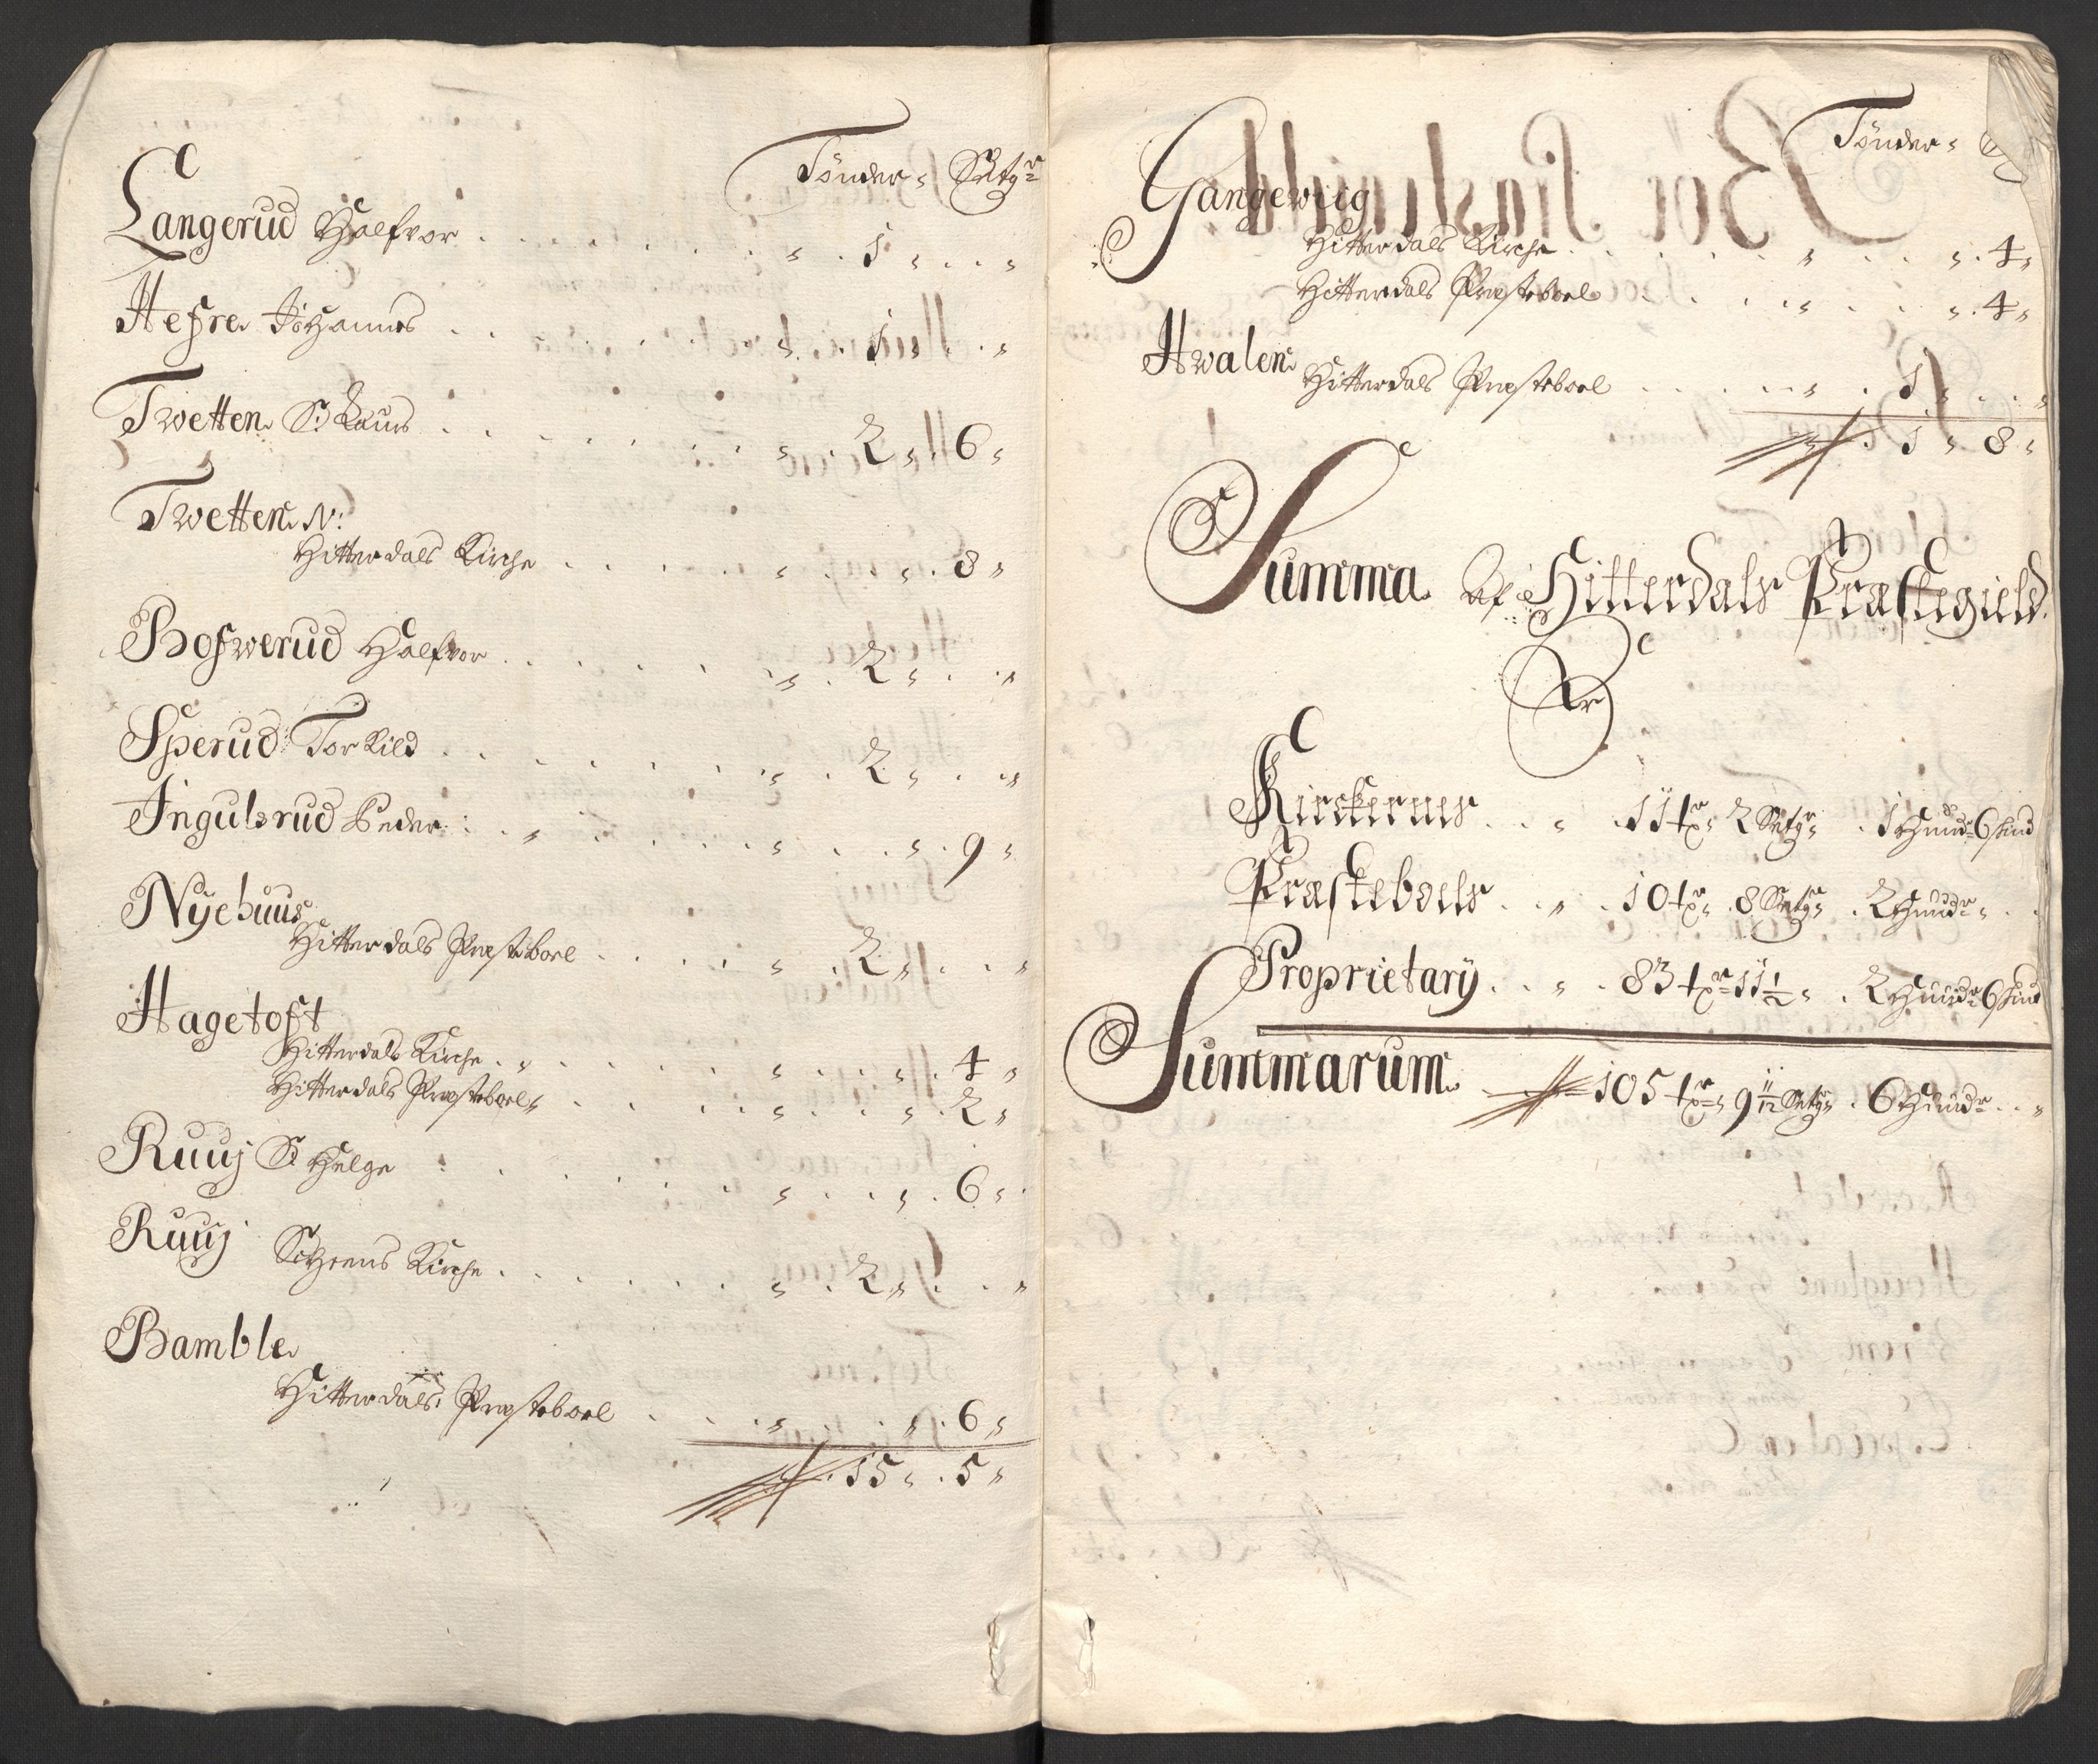 Tönder Setgr
Langerud Halfvor 1
Hefre Johannes 1
Twetten S: Laurs 2 6
Twetten N:
Hitterdals Kirche 8
Bofwerud Halfvor 2
Sperud Torkild 2
Ingulsrud Peder 9
Nÿehuus
Hitterdals Præsteboel 2
Hagetoft
Hitterdals Kirche 4
Hitterdals Præsteboel 2
Ruuj S: Helge 6
Ruuj Kirche 2
Bamble
Hitterdals Præsteboel 6
15 5
Tönder
Gangewiig
Hitterdals Kirche 4
Hitterdals Præsteboel 4
Hwalen
Hitterdals Præsteboel 1
1 8
Summa Af Hitterdals Præstegield
Er
Kirckernes 11 tr 2 Setgr 1 Hundr 6 skind
Præsteboels 10 tr 8 Setgr 2 Hundr
Proprietarÿ 83 tr 11 1/2 2 Hundr 6 skind
Summarum 105 tr 9 11/12 Setgr 6 Hundr